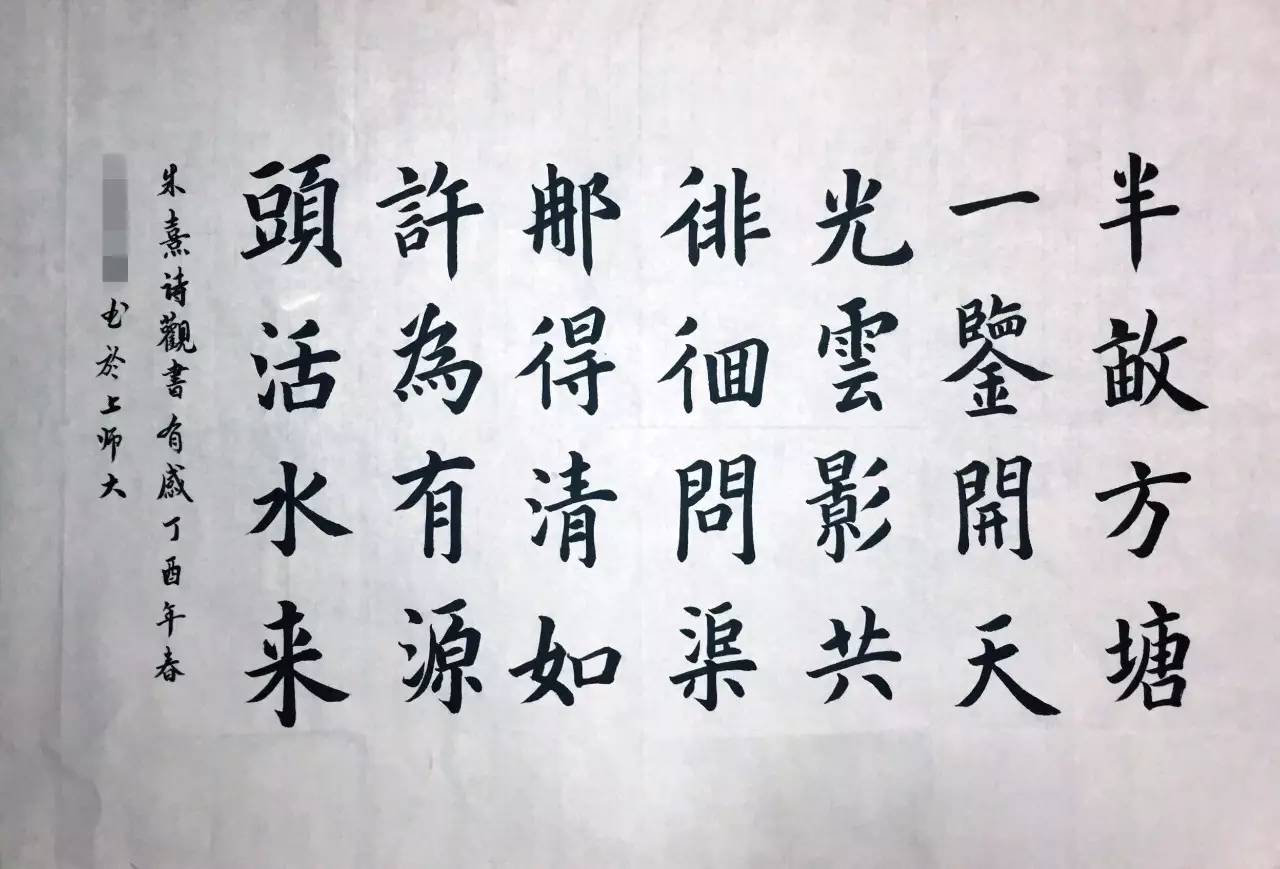 半畝方塘
一鑒開天
光雲影共
徘徊問渠
那得清如
許為有源
頭活水来
朱熹诗觀書有感丁酉年春
书於上师大